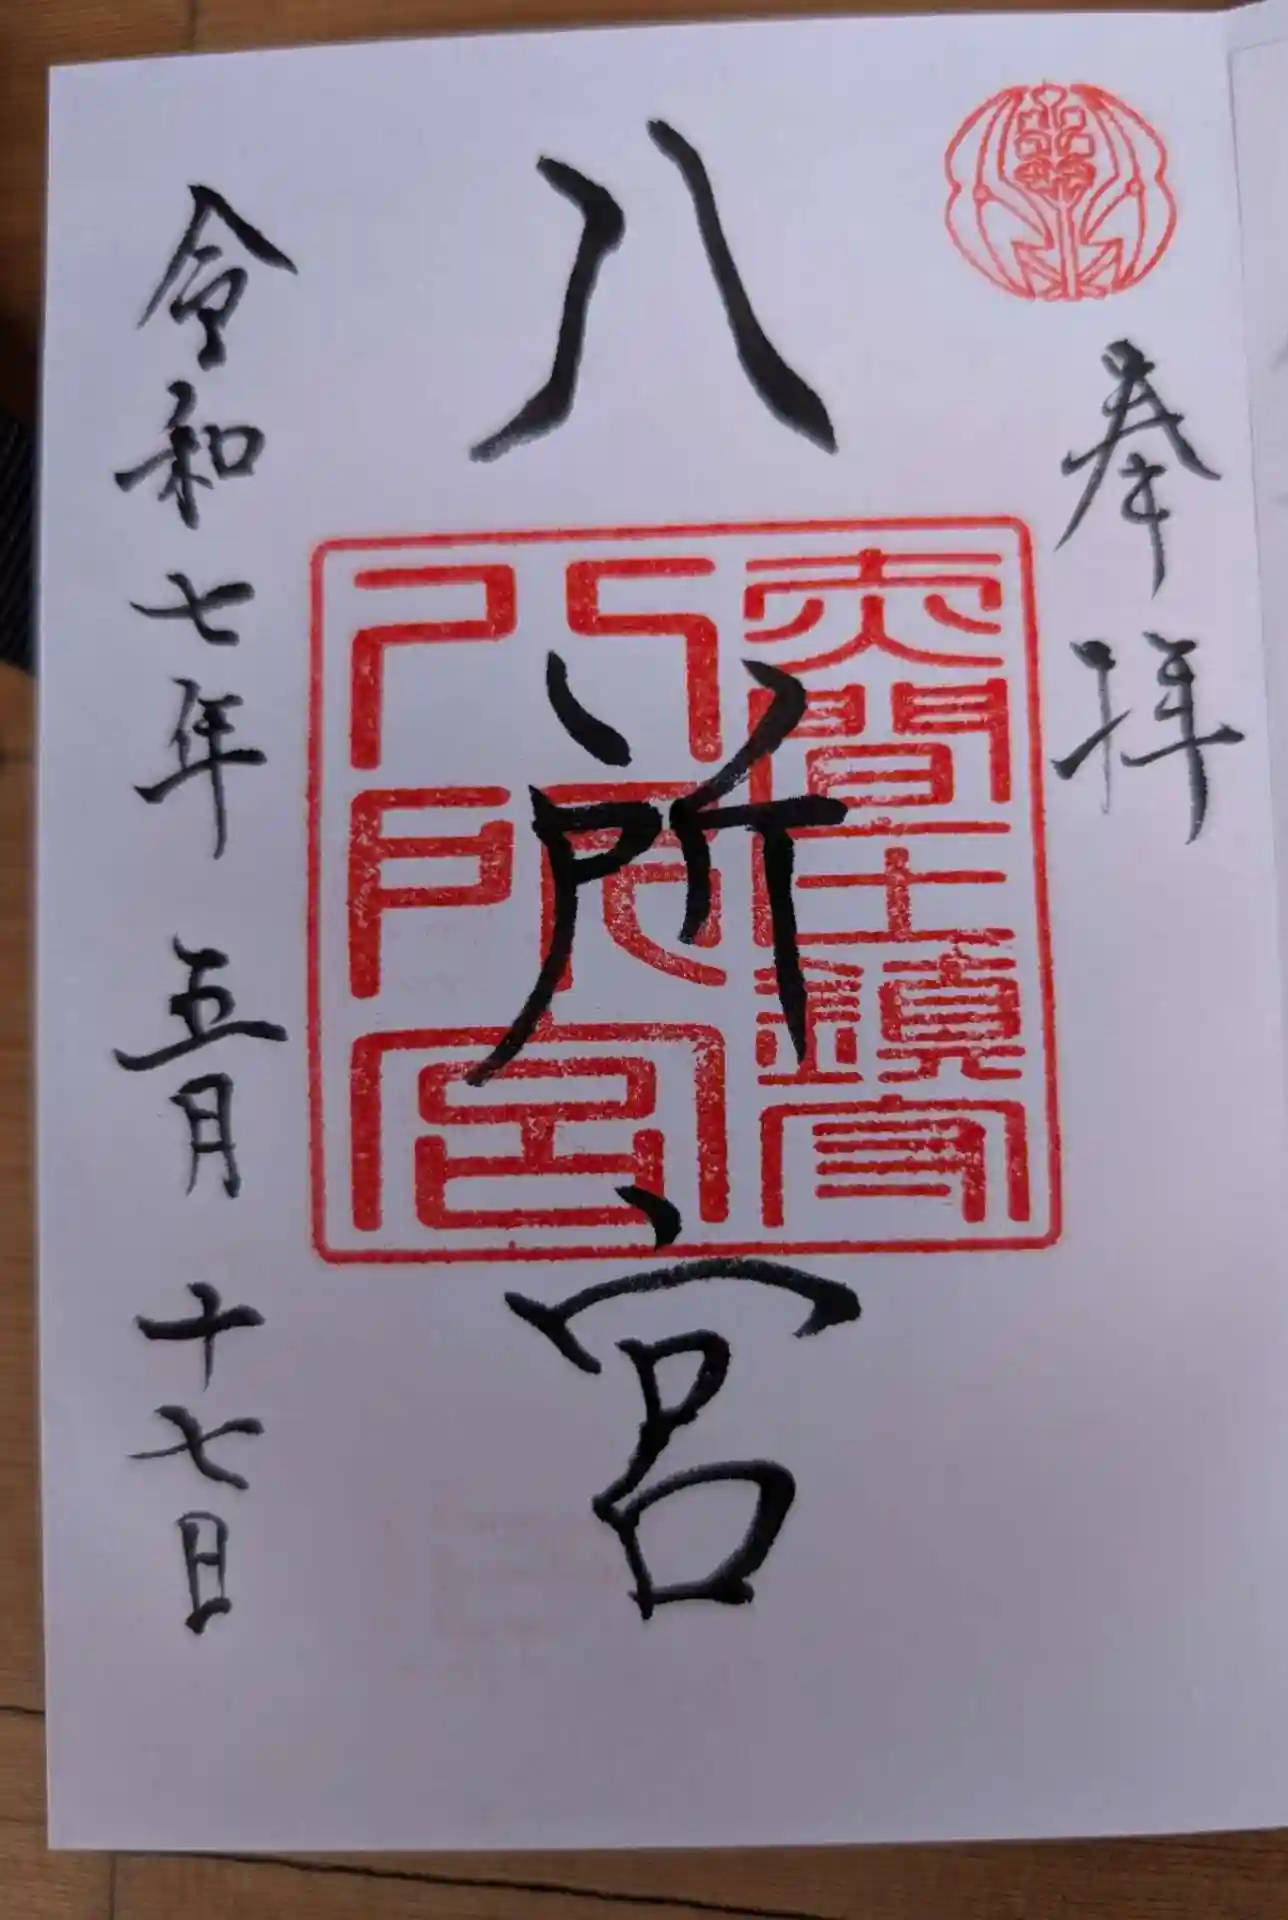 奉拝
八所宮
赤間王鎮守
八所宮
令和七年五月十七日